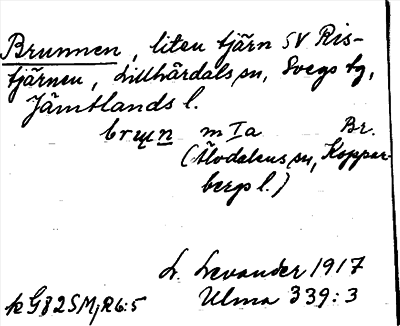 Brunnen, liten tjärn SV Ris-
tjärnen, Lillhärdals sn, Svegs tg,
Jämtlands l.
brɯn m I a Br.
(Älvdalens sn, Koppar-
bergs l.)
L. Levander 1917
Ulma 339:3
kG82SM,R6:5